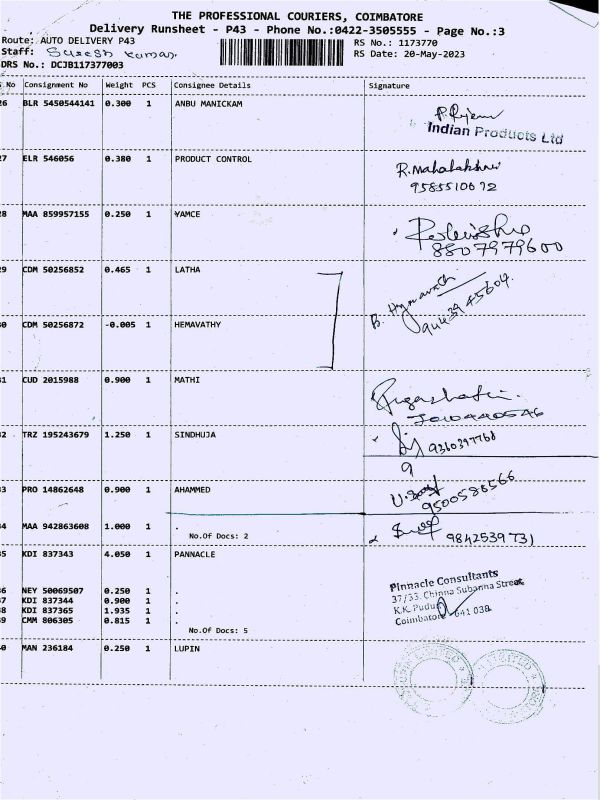 THE PROFESSIONAL COURIERS, COIMBATORE
Delivery Runsheet - P43 - Phone No.:0422-3505555 - Page No.:3
Route: AUTO DELIVERY P43 RS No.: 1173770
Staff: Suresh Kumar. RS Date: 20-May-2023
DRS No.: DCJB117377003
No Consignment No Weight PCS Consignee Details Signature
26 BLR 5450544141 0.300 1 ANBU MANICKAM
Indian Products Ltd
27 ELR 546056 0.380 1 PRODUCT CONTROL R. Mahalakshmi
9585510672
28 MAA 859957155 0.250 1 YAMCE
8807979600
29 CDM 50256852 0.465 1 LATHA
30 CDM 50256872 -0.005 1 HEMAVATHY
9443945604
31 CUD 2015988 0.900 1 MATHI
32 TRZ 195243679 1.250 1 SINDHUJA 9360397768
33 PRO 14862648 0.900 1 AHAMMED
9500586566
34 MAA 942863608 1.000 1 .
No.Of Docs: 2 9842539731
35 KDI 837343 4.050 1 PANNACLE
Pinnacle Consultants
36 NEY 50069507 0.250 1 . 37/33, Chinna Subanna Street
37 KDI 837344 0.900 1 . K.K. Pudur
38 KDI 837365 1.935 1 . Coimbatore 641 038
39 CMM 806305 0.815 1 .
No.Of Docs: 5
40 MAN 236184 0.250 1 LUPIN